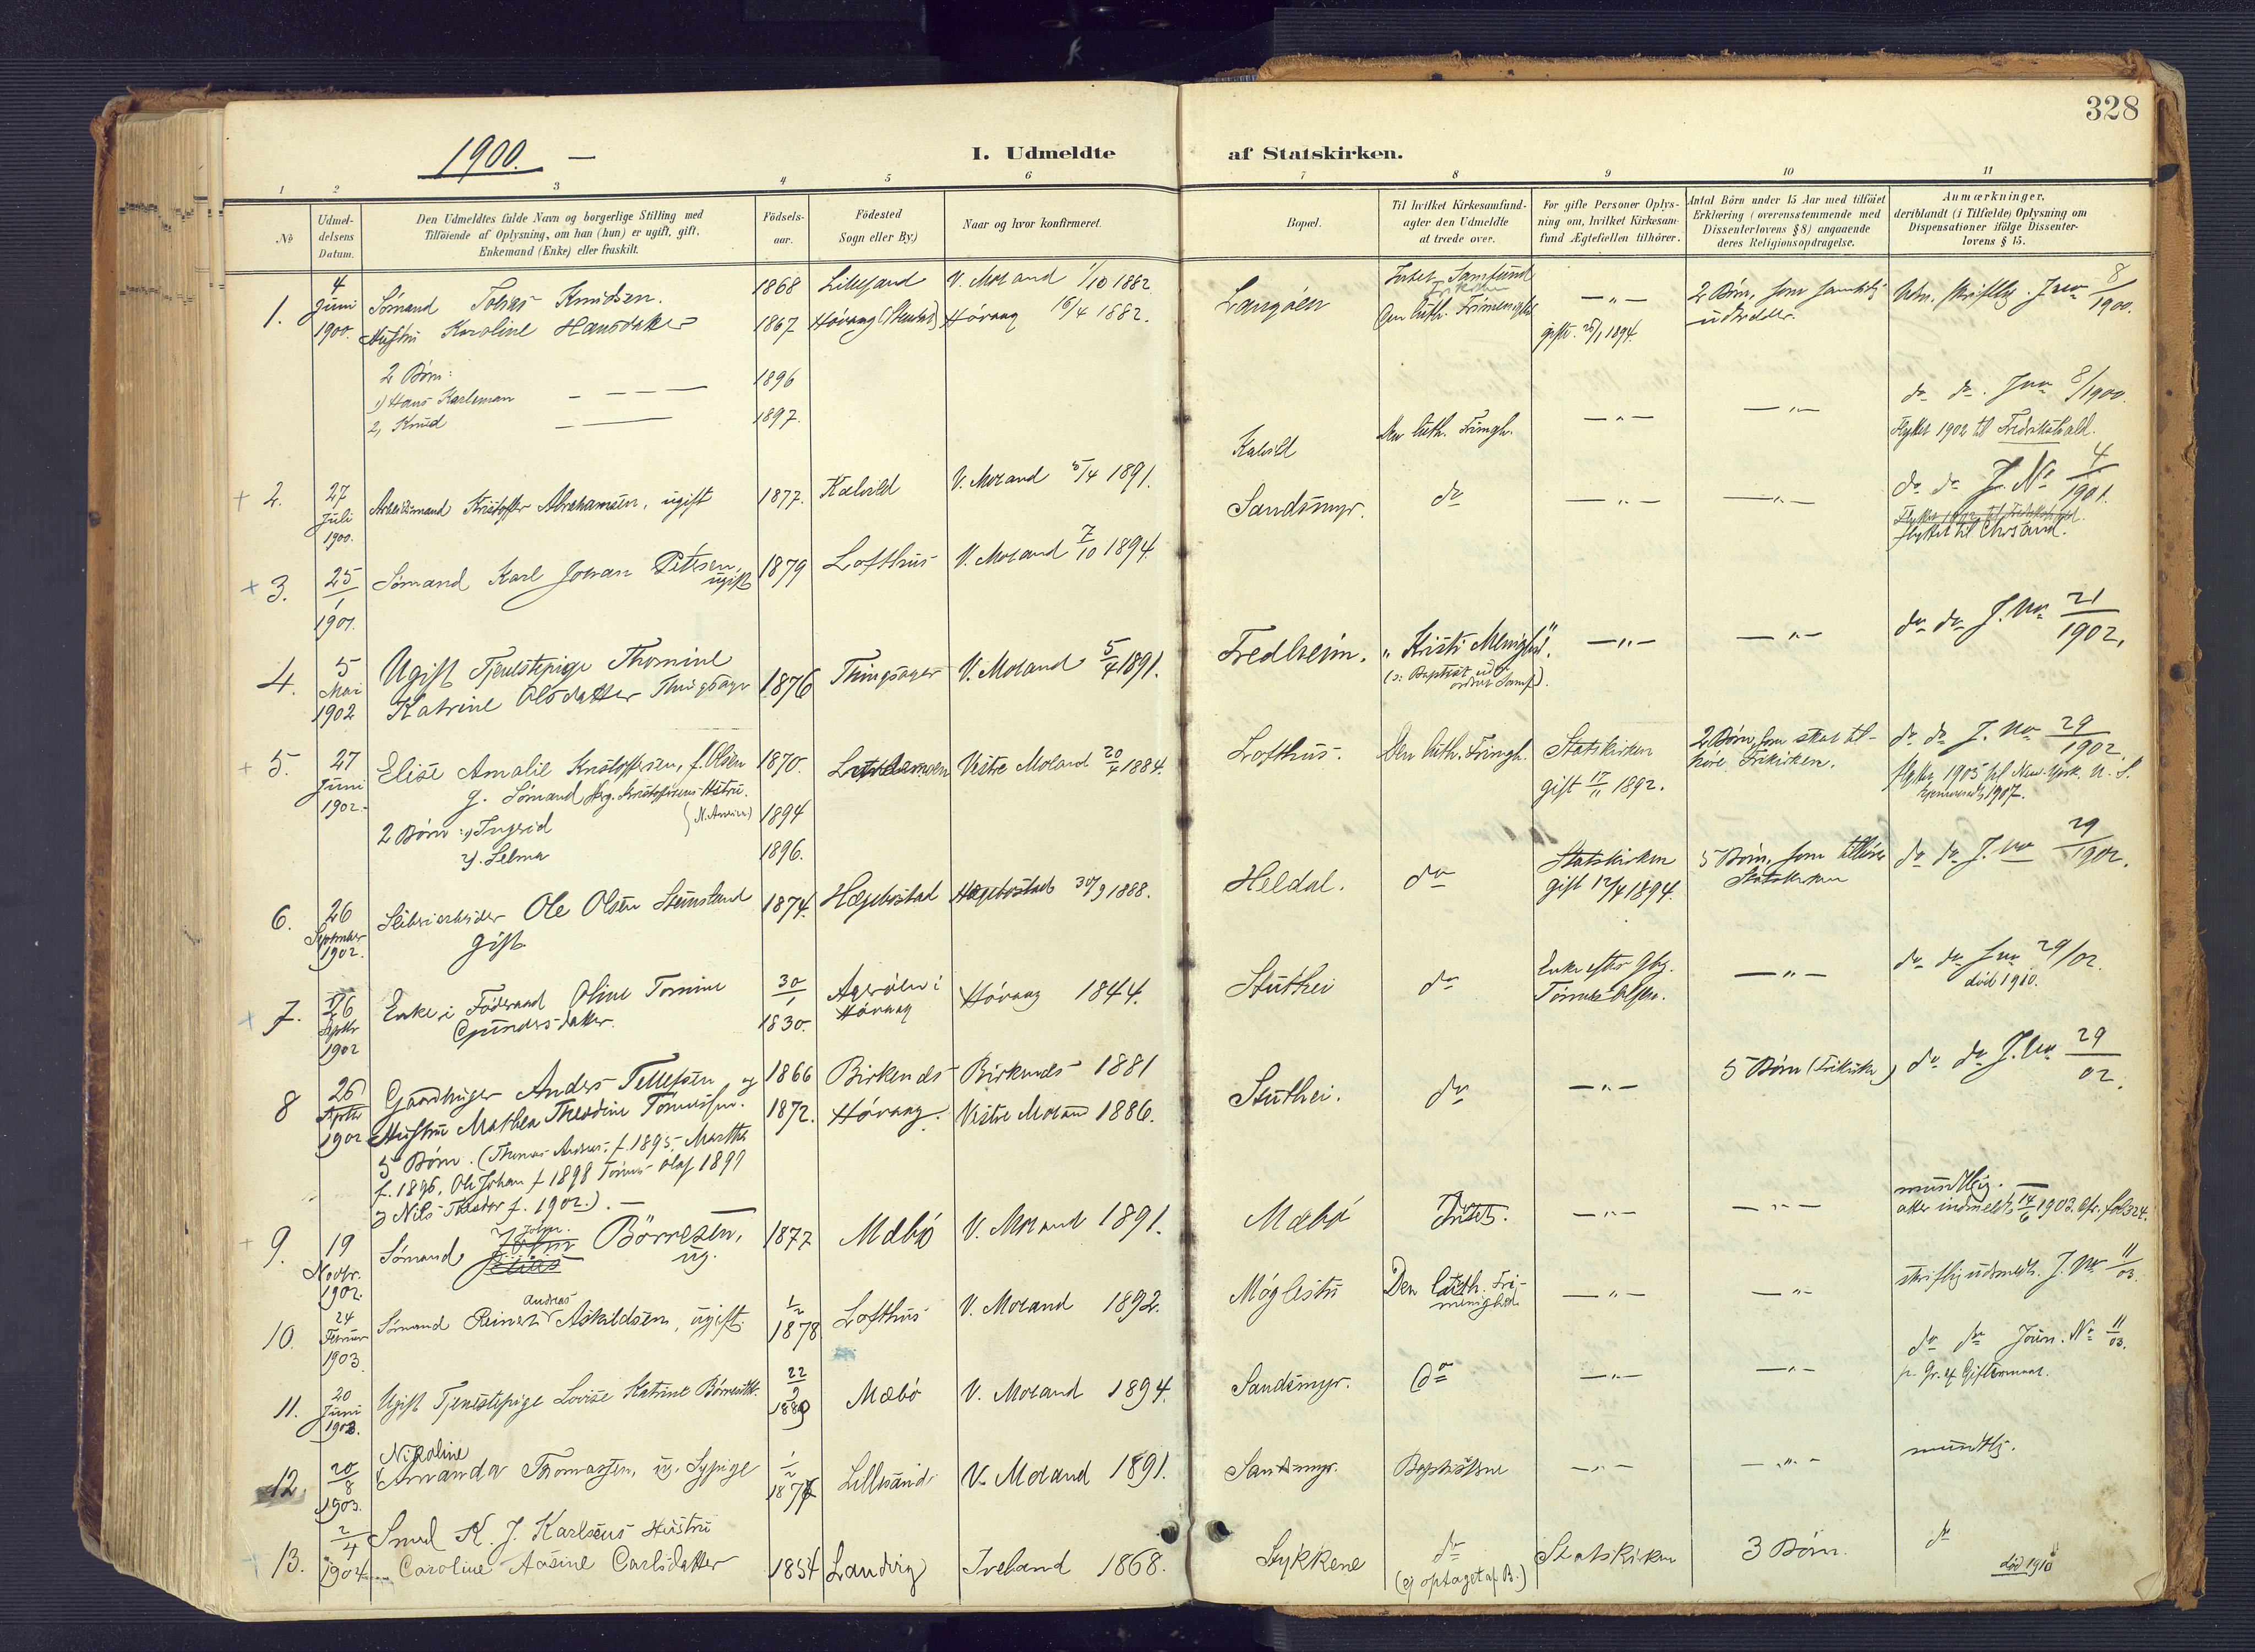 328
1900. —
I. Udmeldte af Statskirken.
1 2 3 4 5 6 7 8 9 10 11
No
Udmel-
delsens
Datum.
Den Udmeldtes fulde Navn og borgerlige Stilling med
Tilföiende af Oplysning, om han (hun) er ugift, gift,
Enkemand (Enke) eller fraskilt.
Födsels-
aar.
Födested
Sogn eller By.)
Naar og hvor konfirmeret.
Bopæl.
Til hvilket Kirkesamfund
agter den Udmeldte
at træde over.
For gifte Personer Oplys-
ning om, hvilket Kirkesam-
fund Ægtefællen tilhörer.
Antal Börn under 15 Aar med tilföiet
Erklæring (overensstemmende med
Dissenterlovens § 8) angaaende
deres Religionsopdragelse.
Anmærkninger,
deriblandt (i Tilfælde) Oplysning om
Dispensationer ifölge Dissenter-
lovens § 15.
1. 4 Juni 1900. Sömand Tobias Knudsen. 1868 Lillesand V. Moland 1/10 1882
Hustru Karoline Hansdatter 1867 Hövaag Hövaag 16/4 1882.
Langöen
Intet Samfund
Den luth. Frimenighed
— " —
gift. 1894.
2 Börn, som samtidig
udtræder.
Udm. skriftlig. Jno 8/1900.
2 Börn:
1) Hans Karleman — — — 1896
2, Knud — 1897.
+ 2. 27 Juli 1900. Arbeidsmand Kristoffer Abrahamsen, ugift 1877. Kalvild V. Moland 5/4 1891.
Kalvild Den luth. Frimgh. — " — — " — do do. Jno 8/1900.
flyttet 1902 til Fredrikshald.
+ 3. 25/1 1901. Sömand Karl Johan Petersen, ugift 1879 Lofthus V. Moland 7/10 1894.
Sandsmyr. do — " — — " — do do J. No 4/1901.
flyttet til Chrsand.
4. 5 Mai 1902 Ugift Tjenestepige Thomine
Katrine Olsdatter Thingsager 1876 Thingsager V. Moland 5/4 1891.
Fredheim. "Kristi Menighed".
— " — — " — do do J. No 21/1902.
+ 5. 27 Juni 1902. Elise Amalie Kristoffersen, f. Olsen 1870. Vestre Moland 20/4 1884.
g. Sömand Kristoffersens Hustru.
(N. Amerika)
2 Börn: 1) Ingrid 1894
2). Selma 1896.
Lofthus. Den luth. Frimgh. Statskirken
gift 17/11 1892.
2 Börn, som skal til-
höre Frikirken.
do do J. No 29/1902.
flyttet 1905 til New-York. U. S.
1907.
6. 26 September 1902. Ole Olsen Steinsland
gift 1874. Hægebostad Hægebostad 30/9 1888.
Heldal. do Statskirken
gift 12/4 1894.
5 Börn, som tilhörer
Statskirken
do do J. No 29/1902.
+ 7. 26 Septbr 1902 Enke i Föderaad Oline Tomine
Gundersdatter. 30/1 1830. Ageröen i
Hövaag Hövaag 1844.
Stuthei do Enke efter Gbr.
Tönnes Olsen.
— " — do do Jno 29/02.
död 1910.
8 26 Septbr 1902 Gaardbruger Anders Tellefsen og 1866 Birkenes Birkenes 1881
Hustru Mathea Theodine Tönnessen. 1872. Hövaag. Vestre Moland 1886.
5 Börn. (Thomas Andreas, f. 1895, Martha
f. 1896, Ole Johan f. 1898 Tönnes Olaf 1899
Nils Theodor f. 1902.). —
Stuthei. do — " — 5 Börn (Frikirken) do do J. No 29/02.
+ 9. 19 Novbr. 1902. Sömand Johan Börresen,
ug. 1877 Mæbö V. Moland 1891.
Mæbö Intet. — " — — " — mundtlig. —
atter indmeldt 14/6 1903. Cfr. fol 324.
10. 24 Februar 1903. Sömand Reinert Andreas Askildsen, ugift. 1/2 1878 Lofthus V. Moland 1892.
Möglestu Den luth. Fri-
menighed — " — — " — skriftlig udmeldt. J. No 11/03.
11. 20 Juni 1903. Ugift Tjenestepige Lovise Katrine Börresdtr. 22/9 1880 Mæbö V. Moland 1894.
Sandsmyr. do — " — — " — do do Journ. No 11/03.
p. Gr. af Giftermaal.
12. 20/8 1903. Nikoline
Amanda Thomassen, ug. Sypige 1/2 1876 Lillesand V. Moland 1891.
Sandsmyr. Baptisterne — " — — " — mundtlig.
+ 13. 2/4 1904. Smed K. J. Karlsens Hustru
Caroline Aasine Carlsdatter 1854 Landvig Iveland 1868.
Stykkene do
(ej optaget af B.) Statskirken 3 Börn. do
död 1910